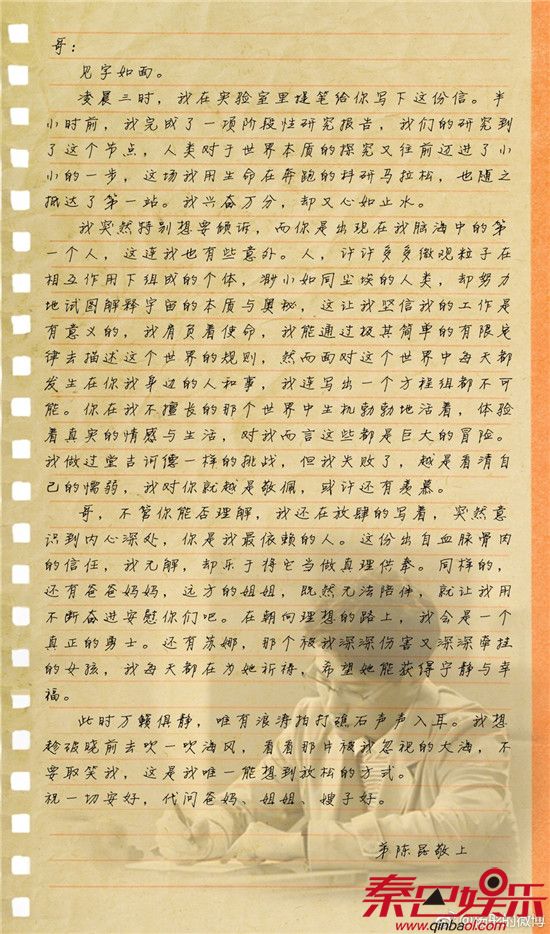 哥：
见字如面。
凌晨三时，我在实验室里提笔给你写下这份信。半
小时前，我完成了一项阶段性研究报告，我们的研究到
了这个节点，人类对于世界本质的探究又往前迈进了小
小的一步，这场我用生命在奔跑的科研马拉松，也随之
抵达了第一站。我兴奋万分，却又心如止水。
我突然特别想要倾诉，而你是出现在我脑海中的第
一个人，这连我也有些意外。人，许许多多微观粒子在
相互作用下组成的个体，渺小如同尘埃的人类，却努力
地试图解释宇宙的本质与奥秘，这让我坚信我的工作是
有意义的，我肩负着使命，我能通过极其简单的有限定
律去描述这个世界的规则，然而面对这个世界中每天都
发生在你我身边的人和事，我连写出一个方程组都不可
能。你在我不擅长的那个世界中生机勃勃地活着，体验
着真实的情感与生活，对我而言这些都是巨大的冒险。
我做过堂吉诃德一样的挑战，但我失败了，越是看清自
己的懦弱，我对你就越是敬佩，或许还有羡慕。
哥，不管你能否理解，我还在放肆的写着，突然意
识到内心深处，你是我最依赖的人。这份出自血脉骨肉
的信任，我无解，却乐于将它当做真理供奉。同样的，
还有爸爸妈妈，远方的姐姐，既然无法陪伴，就让我用
不断奋进安慰你们吧。在朝向理想的路上，我会是一个
真正的勇士。还有苏娜，那个被我深深伤害又深深牵挂
的女孩，我每天都在为她祈祷，希望她能获得宁静与幸
福。
此时万籁俱静，唯有浪涛拍打礁石声声入耳。我想
趁破晓前去吹一吹海风，看看那片被我忽视的大海，不
要取笑我，这是我唯一能想到放松的方式。
祝一切安好，代问爸妈、姐姐、嫂子好。
弟陈磊敬上
秦巴娱乐
www.qinbaol.com
的微博